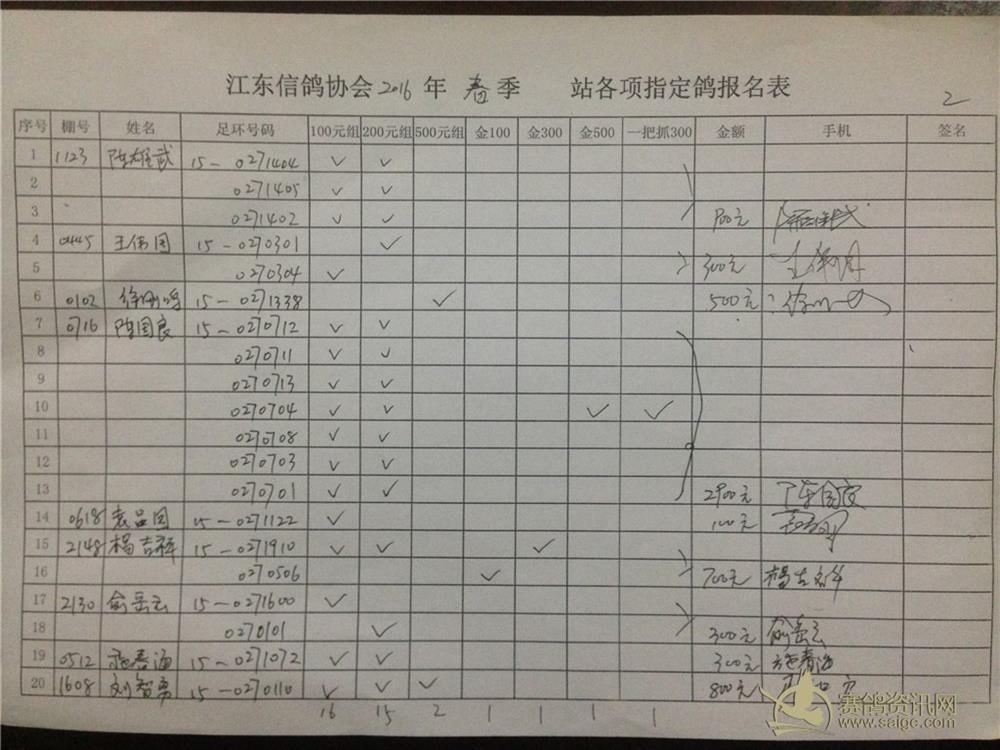 江东信鸽协会2016年 春季 站各项指定鸽报名表
2
序号 棚号 姓名 足环号码 100元组 200元组 500元组 金100 金300 金500 一把抓300 金额 手机 签名
1 1123 陈雄武 15-0271404 ✓ ✓
2 0271405 ✓ ✓
3 0271402 ✓ ✓ 900元
4 0445 王伟国 15-0270301 ✓
5 0270304 ✓ 300元 王伟国
6 0102 15-0271338 ✓ 500元
7 0716 陈国良 15-0270712 ✓ ✓
8 0270711 ✓ ✓
9 0270713 ✓ ✓
10 0270704 ✓ ✓ ✓ ✓
11 0270708 ✓ ✓
12 0270703 ✓ ✓
13 0270701 ✓ ✓ 2900元 陈国良
14 0618 袁品国 15-0271122 ✓ 100元
15 2148 杨吉祥 15-0271910 ✓ ✓ ✓
16 0270506 ✓ 700元 杨吉祥
17 2130 俞岳云 15-0271600 ✓
18 0270101 ✓ 300元 俞岳云
19 0512 施春海 15-0271072 ✓ ✓ 300元 施春海
20 1608 刘智勇 15-0270110 ✓ ✓ ✓ 800元
16 15 2 1 1 1 1
赛鸽资讯网
www.saigc.com